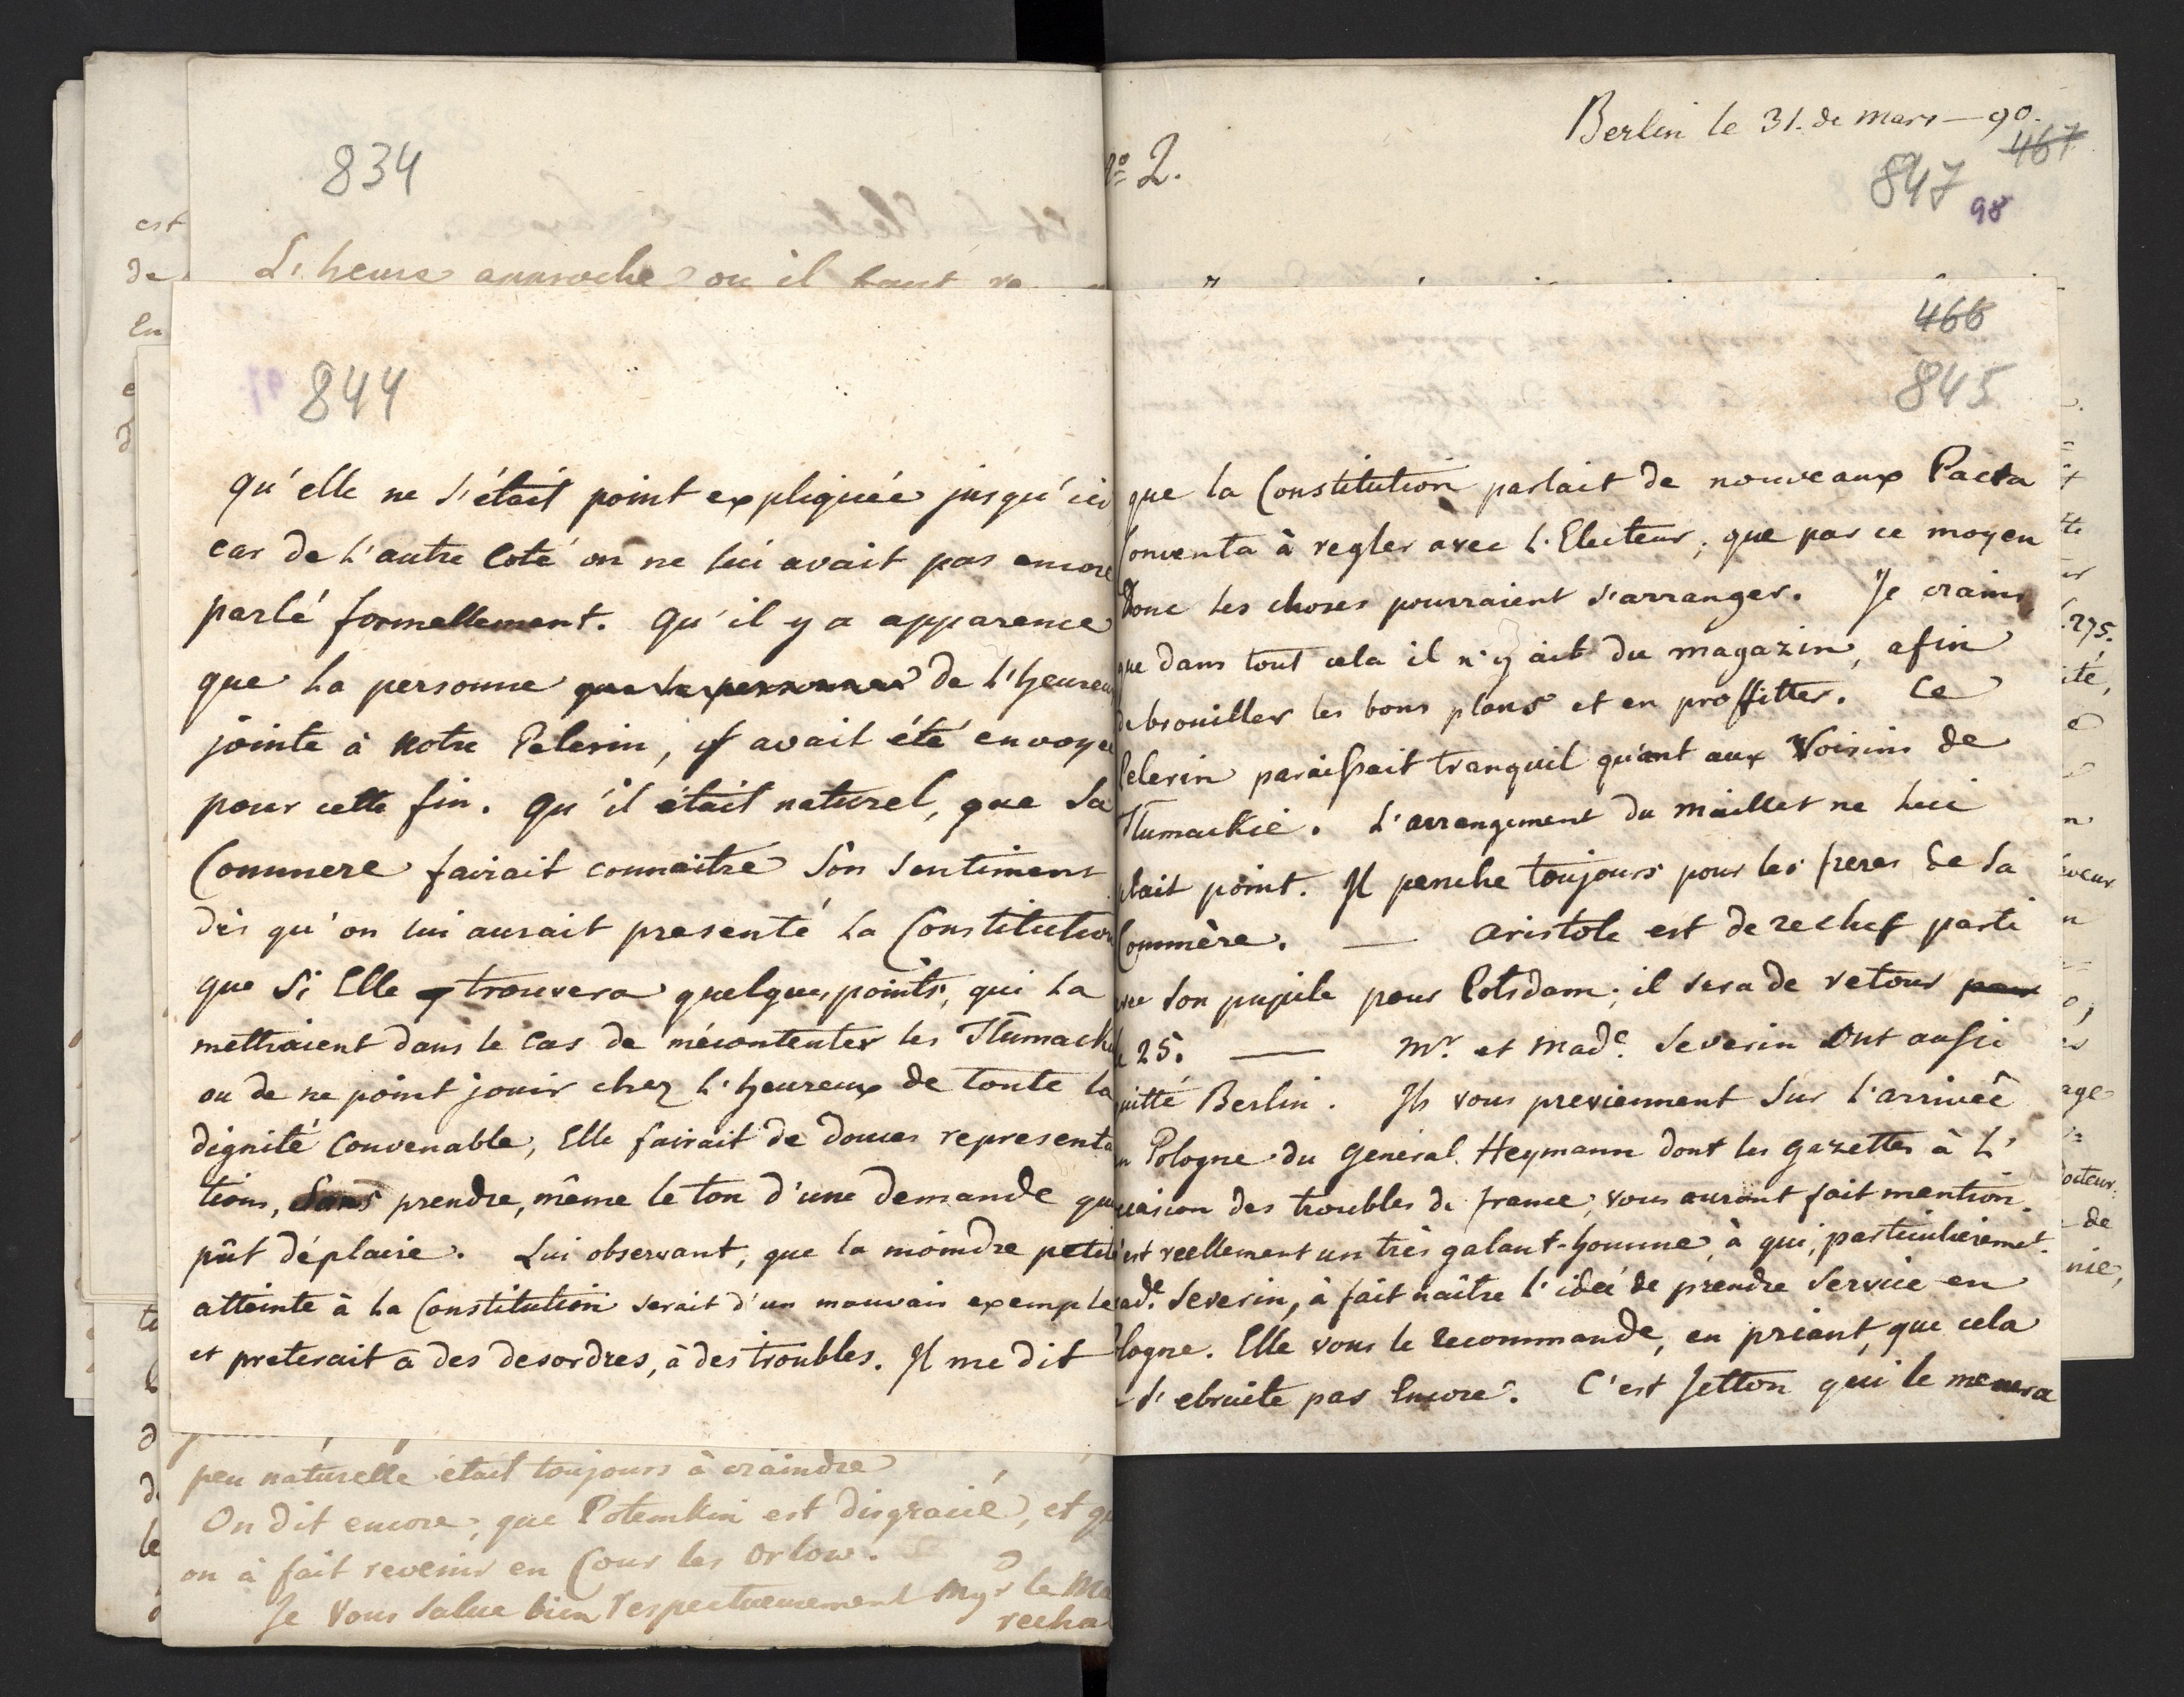 834
L'heure approche ou il faut
844
qu'elle ne s'était point expliquée jusqu'ici
car de l'autre Coté on ne lui avait pas encore
parlé formellement. Qu'il y a apparence
que la personne de l'heureux
jointe à notre Pelerin, avait été envoyé
pour cette fin. Qu'il était naturel, que sa
Commere fairait connaitre son sentiment
dès qu'on lui aurait presenté la Constitution
que si Elle y trouvera quelques points, qui la
mettraient dans le Cas de mécontenter les Tlumack
ou de ne point jouir chez l'heureux de toute la
dignité Convenable, Elle fairait de douces representa
tions, sans prendre, même le ton d'une demande qui
pût déplaire. Lui observant, que la moindre petite
atteinte à la Constitution serait d'un mauvais exemple
et preterait à des desordres, à des troubles. Il me dit
peu naturelle était toujours à craindre
On dit encore, que Potemkin est disgracié, et qu
on à fait revenir en Cour les Orlow.
Je Vous salue bien respectueusement Mgr le Ma
recha
Berlin le 31. de Mars — 90.
No 2.
467
847
98
466
845
que la Constitution parlait de nouveaux Pacta
Conventa à regler avec l'Electeur, que par ce moyen
Donc les choses pourraient s'arranger. Je crains
que dans tout cela il n'y ait du magazin, afin
de brouiller les bons plans et en proffitter. Ce
Pelerin paraissait tranquil quant aux Voisins de
Tlumackie. L'arrangement du Maillet ne lui
plait point. Il penche toujours pour les freres de sa
Commère. — Aristote est de rechef parti
avec son pupile pour Potsdam; il sera de retour pour
le 25. — Mr. et Made. Severin Ont aussi
quitté Berlin. Ils vous previennent sur l'arrivée
en Pologne du General Heymann dont les gazettes à l'
occasion des troubles de france, vous auront fait mention.
C'est reellement un très galant-homme, à qui, particulieremet.
Made. Severin, à fait naître l'idée de prendre Service en
Pologne. Elle vous le recommande, en priant, que cela
s'ebruite pas Encore. C'est Jetton qui le menera